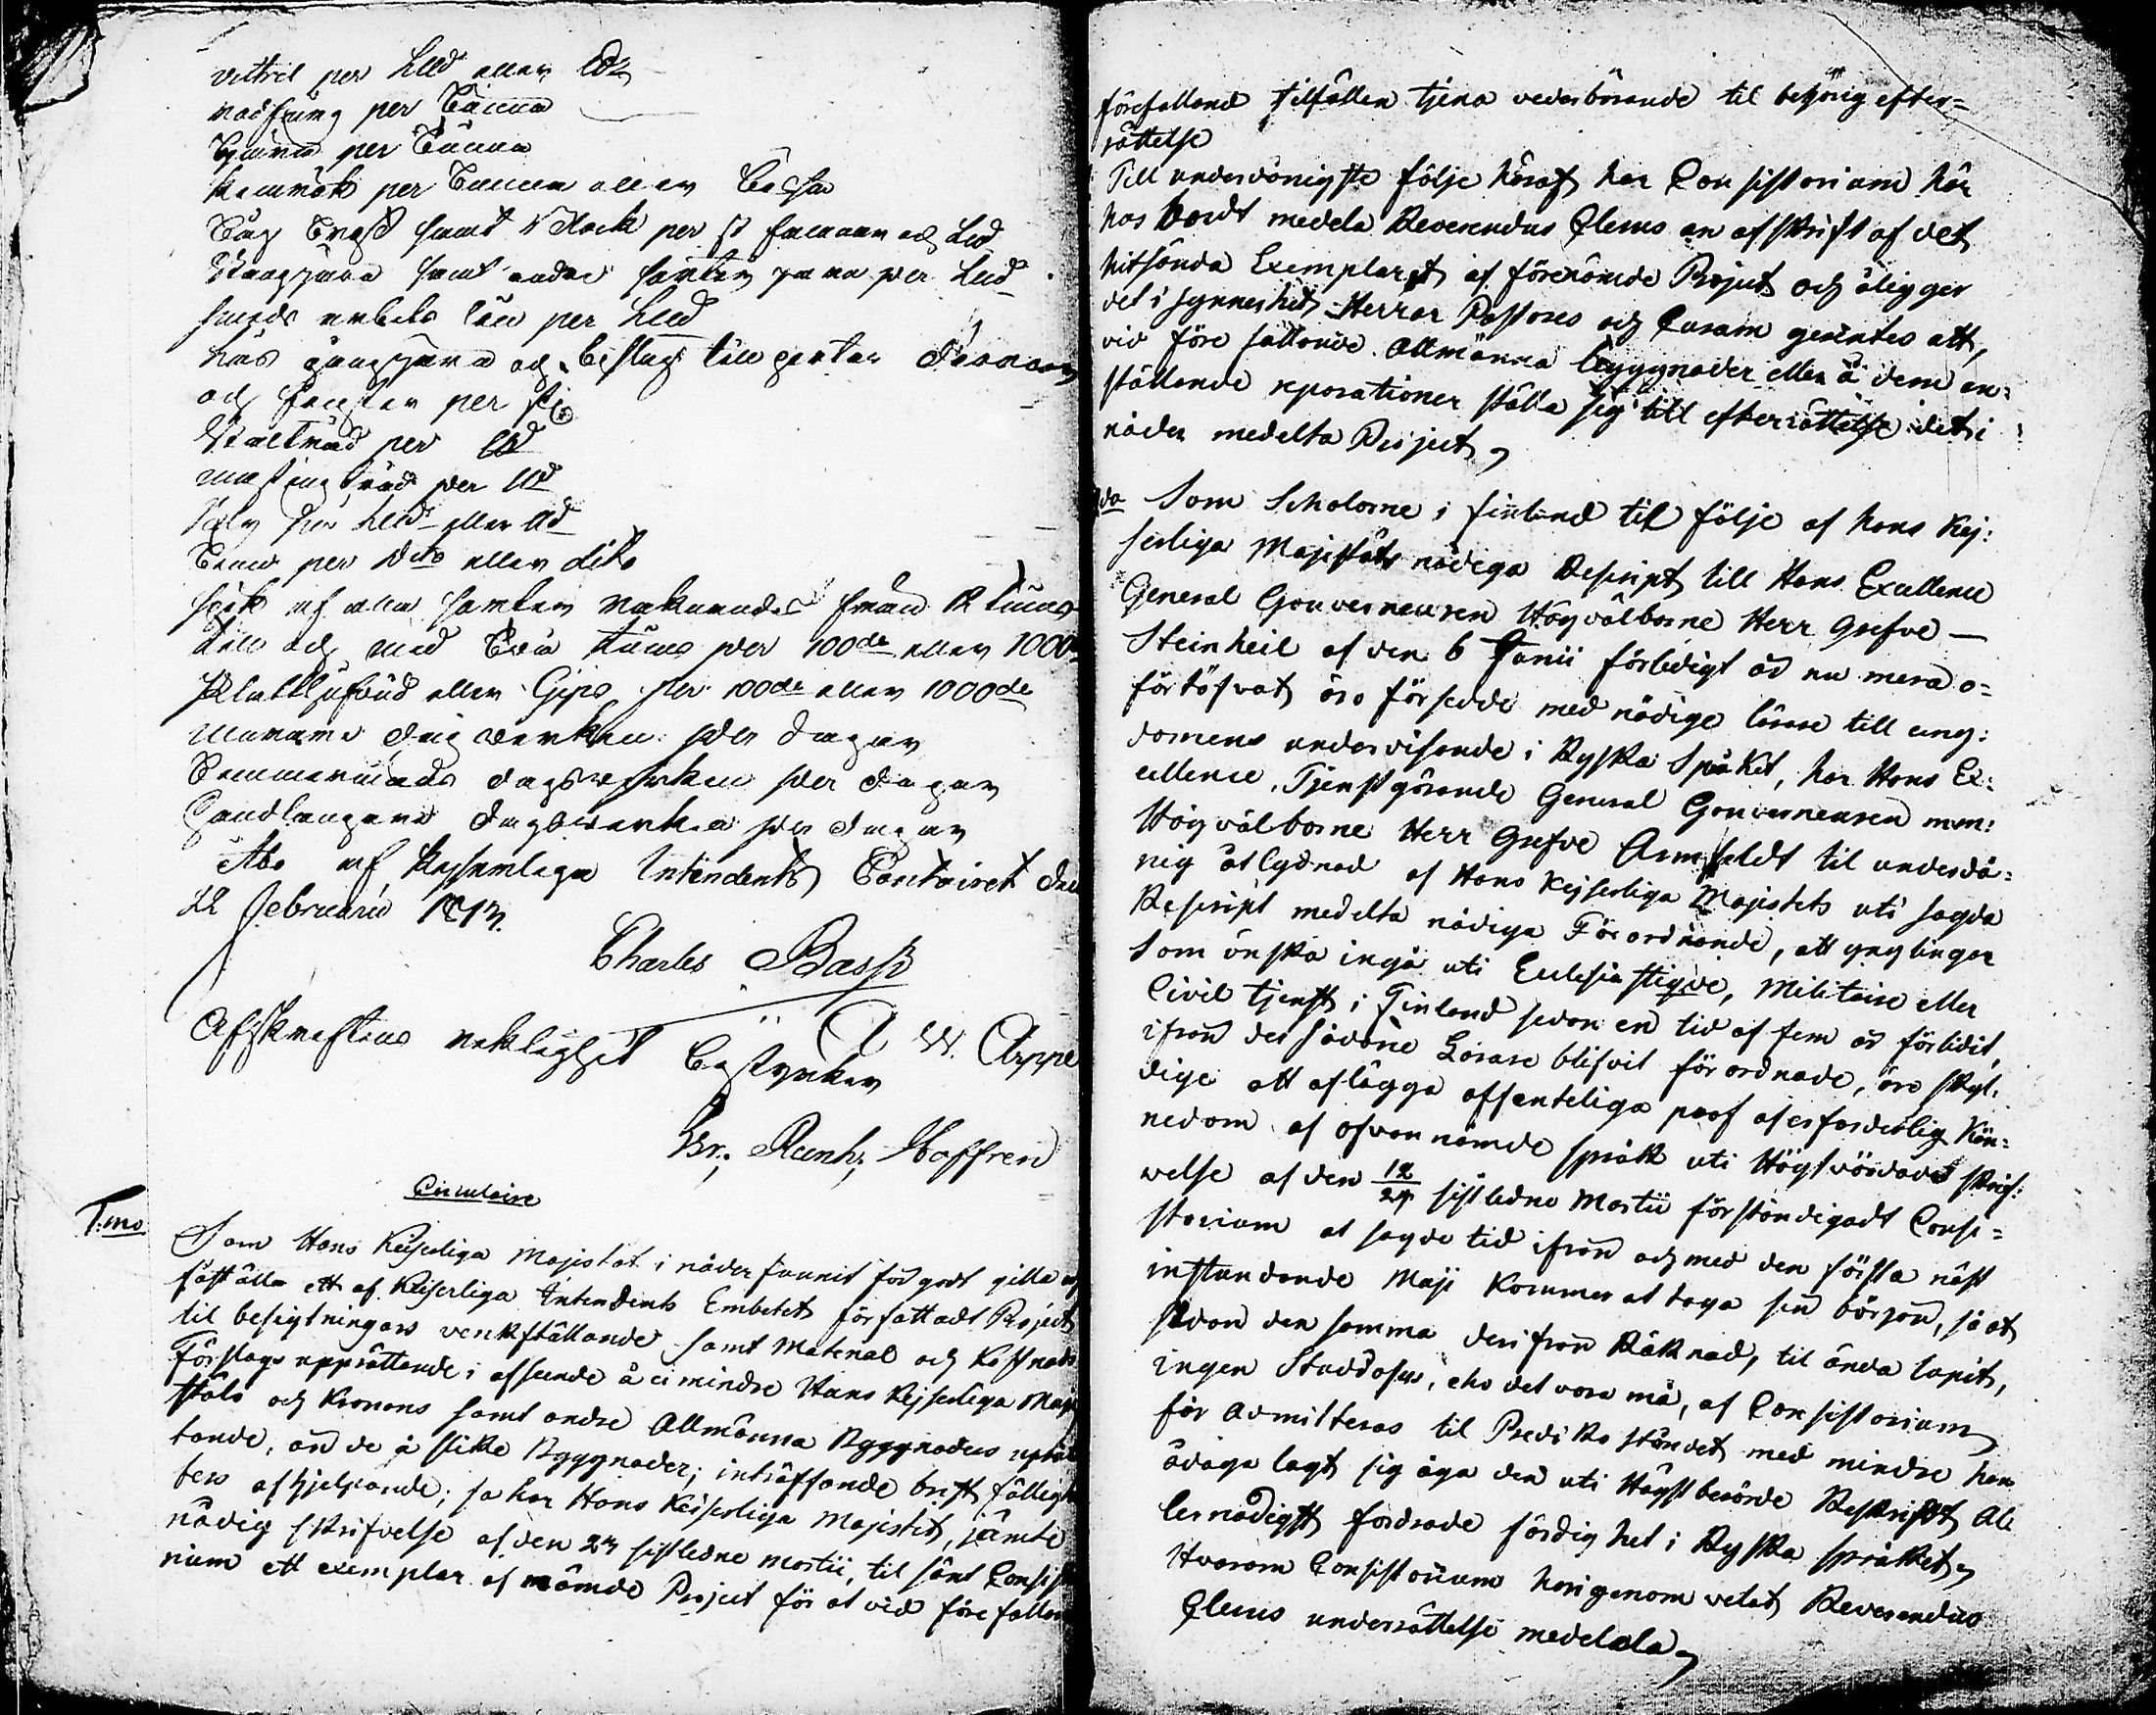 vittril per L℔ eller ℔
rödfärg per Tunna
Tjära per Tunna
kimrök per Tunna eller
samt per st famnar och L℔
Stångjern samt andre sorter jern per L℔
smeds arbets lön per L℔
lås gångjern och beslag till portar dörrar
och fenster per st
Ståltråd per ℔
messings tråd per ℔
Talg per L℔ eller ℔
per dito eller dito
spik af alla sorter räknade från 12 tums
till och med två tums per 100de eller 1000de
eller Gips per 100de eller 1000de
murare dagsverken per dagar
Timmermans dagsverken per dagar
Handlangare dagsverken per dagar
Åbo af Kejserliga Intendents Contoiret den
22 Februarii 1813.
Charles Bassi
A W. Arppe
Afskriftens riktighet bestyrker
Br: Runh: Hoffren
Circulaire
1:mo
Som Hans Keiserliga Majistät i nåder funnit för godt gilla och
fastställa ett af Keiserliga Intendents Embetet författadt Project
til besigtningars verkställande samt Material och Kostnads
Förslags upprättande i afseende å ei mindre Hans Kejserliga Maj
stäts och Kronans samt andre Allmänna Byggnaders uphål
lande, än de å slike Byggnader; inträffande bristfällighe
ters afhjelpande; så har Hans Keiserliga Majistet, jämte
nådig skrifvelse af den 27 sistledne Martii, til sänt Consisto
rium ett exemplar af nämde Project för at vid förefallan
förefalland tilfällen tjena vederbörande til behörig efter=
rättelse
Till underdånigste följe häraf har Consistorium här
hos bordt medela Reverendus Clerus en afskrift af det
hitsända Exemplaret af förenämde Project och åligger
det i synnerhet Herrar Pastores och Curam gerentes att,
vid före fallande Allmänna byggnader eller å dem an=
ställande reparationer ställa sig till efterrättelse det i
nåder medelta Project,
2do Som Scholorne i finland til följe af hans Kej:
serliga Majistäts nådiga Rescript till Hans Excellence
General Gouverneuren Högvälborne Herr Grefve —
Steinheil af den 6 Junii förledigt år nu mera o=
förtöfvat äro försedde med nödige lärare till ung:
domens undervisande i Ryska Språket, har Hans Ex:
cellence, Tjenstgörande General Gouverneuren m.m:
Högvälborne Herr Grefve Armfeldt til underdå=
nig åtlydnad af Hans Kejserliga Majistets uti sagda
Rescript medelta nådiga Förordnande, att ynglingar
som önska ingå uti Eclesiastique, Militaire eller
Civil tjenst i Finland sedan en tid af fem år förlidit,
ifrån det sådane Lärare blifvit förordnade, äro skyl:
dige att aflägga offenteliga prof af erforderlig Kän=
nedom af ofvannämde språk uti Högtvördad skrif:
velse af den 12/24 sistledne Martii förständigadt Consi=
storium at sagde tid ifrån och med den första näst
instundande Maji kommer at taga sin början, så at
sedan den samma derifrån Räknad, til ända lupit,
ingen Studiosus, eho det vara må, af Consistorium
får admitteras til Prediko ståndet med mindre han
ådaga lagt sig äga den uti Högstberörde Reskript Al
lernådigst fordrade färdighet i Ryska språket,
Hvarom Consistorium härigenom velat Reverendus
Clerus underrättelse meddela,